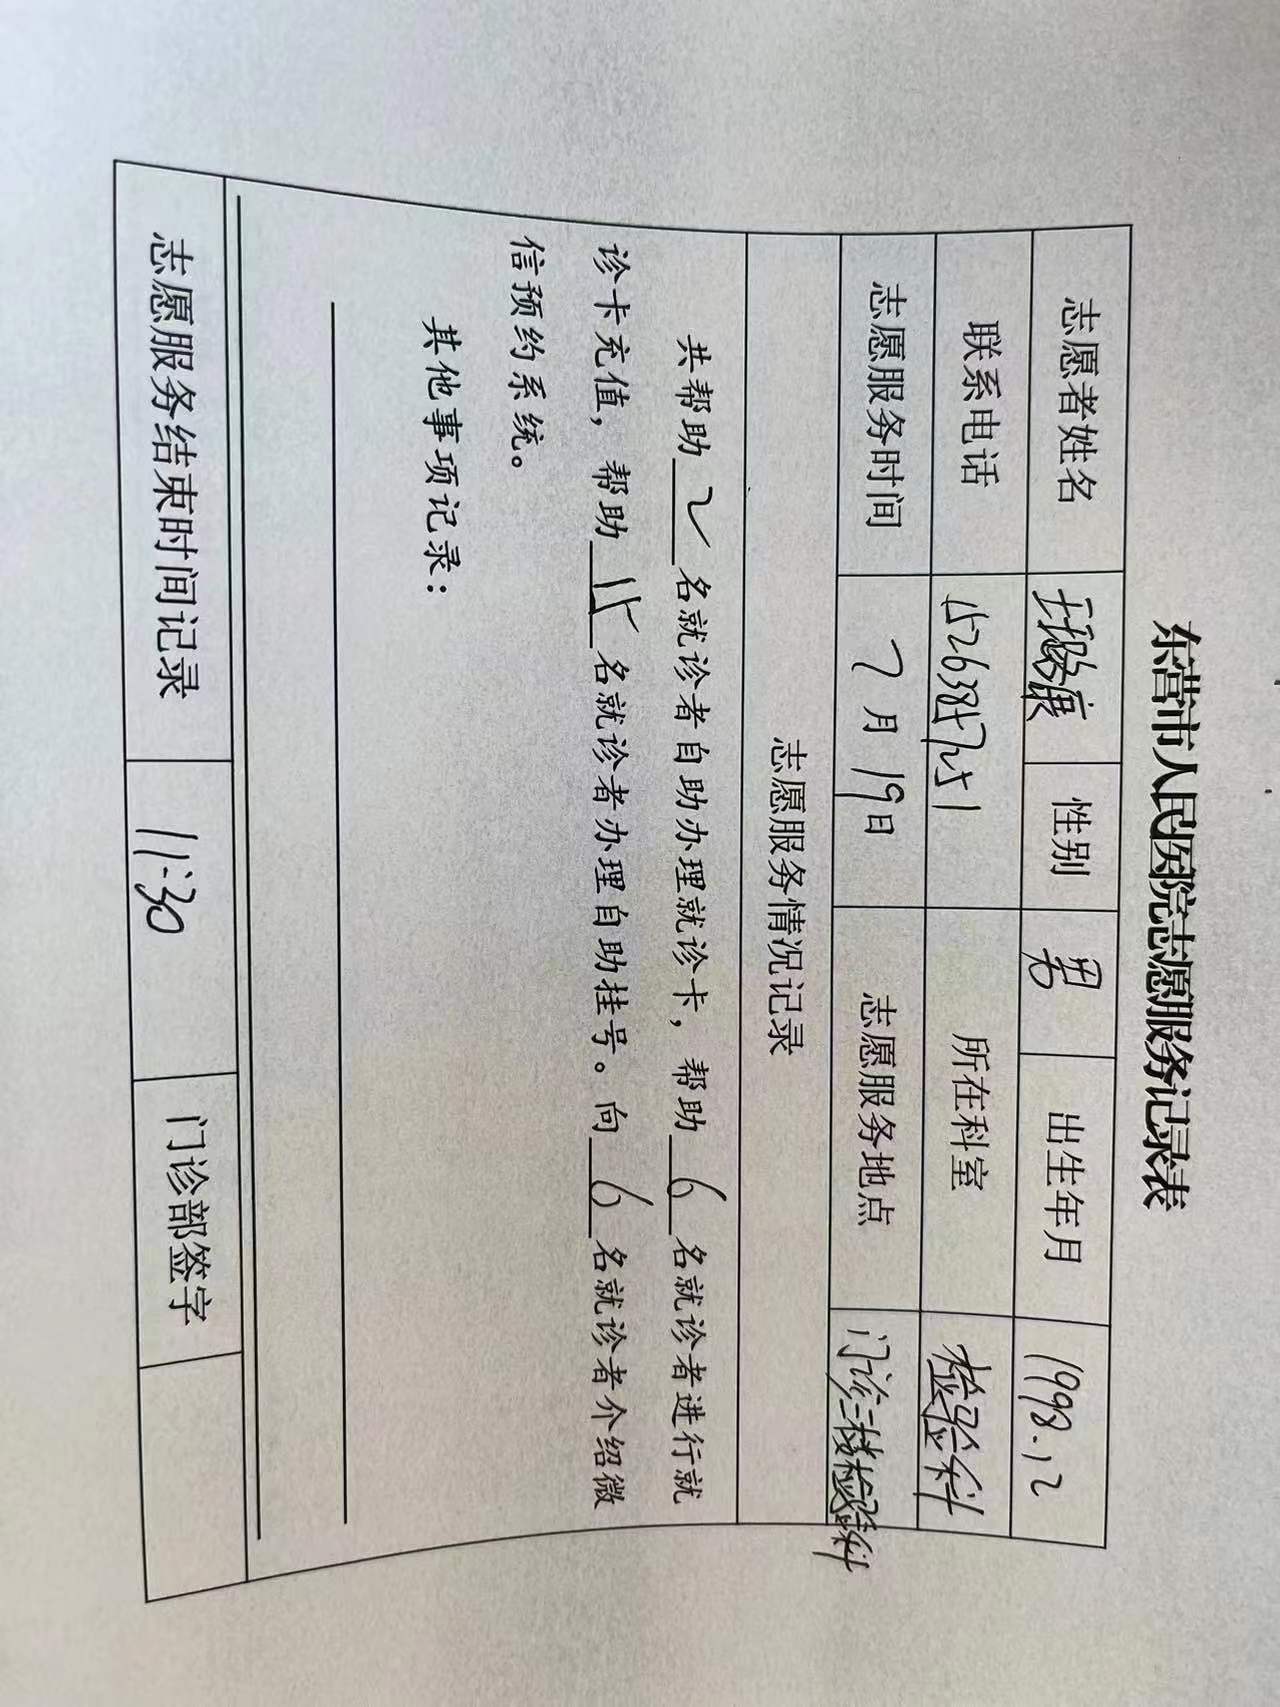 东营市人民医院志愿服务记录表
志愿者姓名 性别 男 出生年月 1998.12
联系电话 所在科室 检验科
志愿服务时间 7月19日 志愿服务地点 门诊三楼检验科
志愿服务情况记录
共帮助2名就诊者自助办理就诊卡，帮助6名就诊者进行就
诊卡充值，帮助15名就诊者办理自助挂号。向6名就诊者介绍微
信预约系统。
其他事项记录：
志愿服务结束时间记录 11:30 门诊部签字